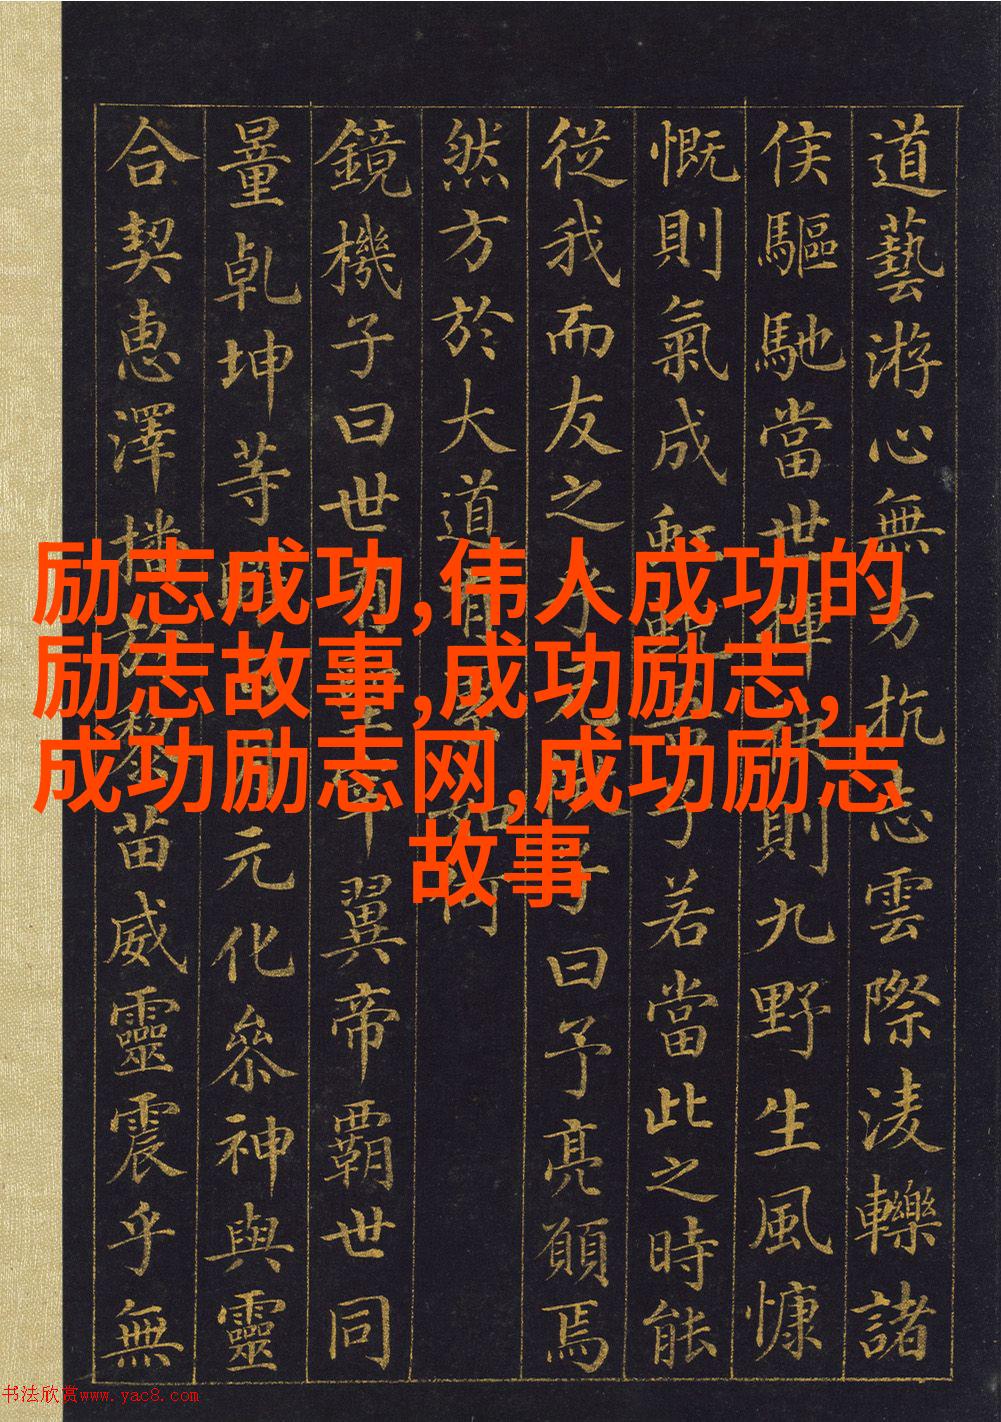 道藝游心無方抗志雲際淩轢諸
侯驅馳當世揮袂則九野生風慷
慨則氣成子若當此之時能
從我而友之乎元子曰予亮願焉
然方於大道有如何
鏡機子曰世有翼帝霸世同
量乾坤等元化叅神與靈
合契惠澤播苗威靈震乎無
励志成功,伟人成功的
励志故事,成功励志,
成功励志网,成功励志
故事
书法欣赏www.yac8.com